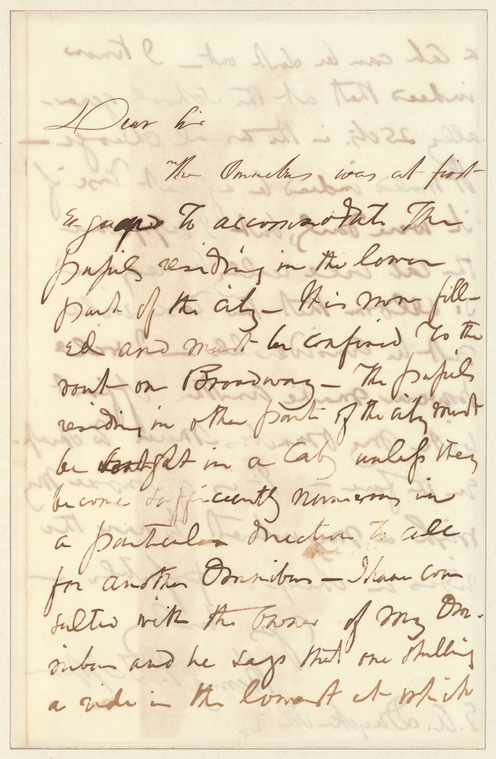 Dear Sir
The Omnibus was at first
engaged to accommodate the
pupils residing in the lower
part of the city – It is now fill-
ed and must be confined to the
rout on Broadway – The pupils
residing in other parts of the city must
be brought in a Cab, unless they
become sufficiently numerous in
a particular direction to call
for another Omnibus – I have con
sulted with the owner of my Om-
nibus and he says that one shilling
a ride is the lowest at which